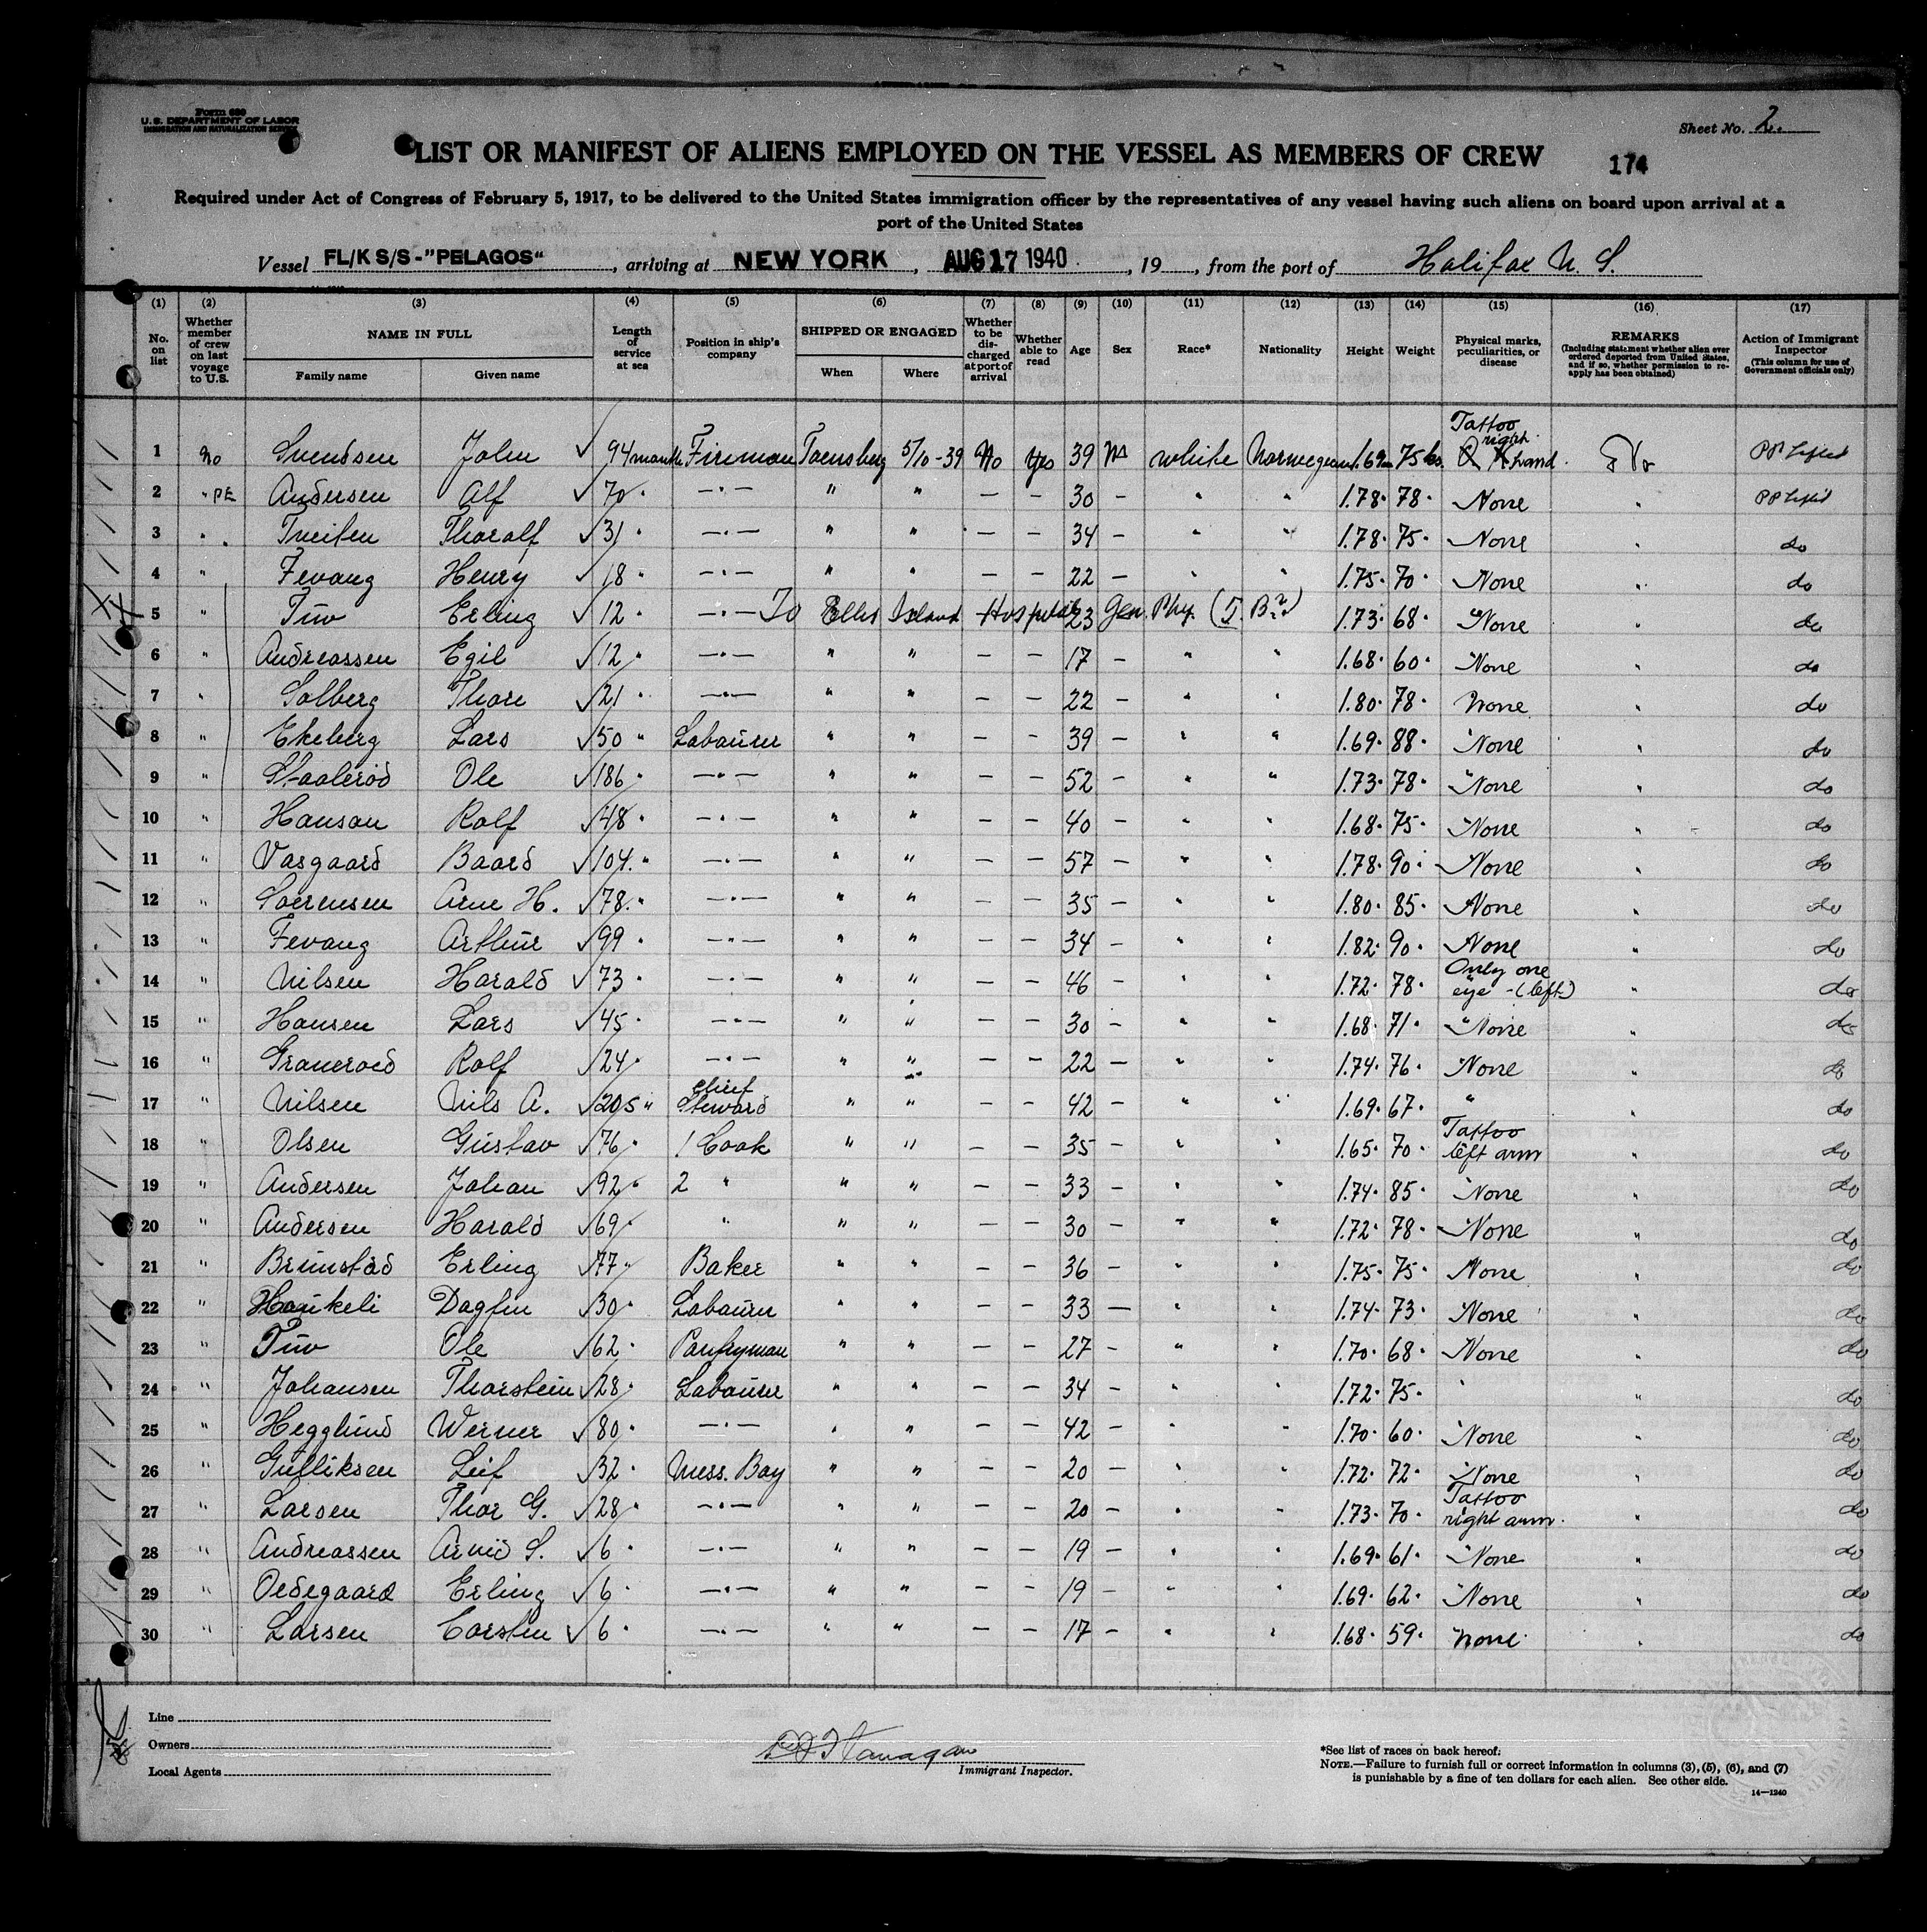 Form 680
U. S. DEPARTMENT OF LABOR
IMMIGRATION AND NATURALIZATION SERVICE
Sheet No. 2.
LIST OR MANIFEST OF ALIENS EMPLOYED ON THE VESSEL AS MEMBERS OF CREW
174
Required under Act of Congress of February 5, 1917, to be delivered to the United States immigration officer by the representatives of any vessel having such aliens on board upon arrival at a
port of the United States
Vessel FL/K S/S-"PELAGOS", arriving at NEW YORK, AUG 17 1940, 19, from the port of Halifax N. S.
(1) (2) (3) (4) (5) (6) (7) (8) (9) (10) (11) (12) (13) (14) (15) (16) (17)
No. on list
Whether member of crew on last voyage to U.S.
NAME IN FULL
Family name Given name
Length of service at sea
Position in ship's company
SHIPPED OR ENGAGED
When Where
Whether to be discharged at port of arrival
Whether able to read
Age
Sex
Race*
Nationality
Height
Weight
Physical marks, peculiarities, or disease
REMARKS
(Including statement whether alien ever ordered deported from United States, and if so, whether permission to reapply has been obtained)
Action of Immigrant Inspector
(This column for use of Government officials only)
1 No Svendsen John 94 months Fireman Toensberg 5/10-39 No Yes 39 M White Norwegian 1.69 75 Tattoo right hand. No PP Lifted
2 " PE Andersen Alf 70 " —"— " " — — 30 — " " 1.78 78 None " PP Lifted
3 " Tveiten Thoralf 31 " —"— " " — — 34 — " " 1.78 75 None " do
4 " Fevang Henry 18 " —"— " " — — 22 — " " 1.75 70 None " do
5 " Tuv Erling 12 " —"— To Ellis Island Hospital 23 Gen. Phy. (T. B?) 1.73 68 None " do
6 " Andreassen Egil 12 " —"— " " — — 17 — " " 1.68 60 None " do
7 " Solberg Thore 21 " —"— " " — — 22 — " " 1.80 78 None " do
8 " Ekeberg Lars 50 " Labourer " " — — 39 — " " 1.69 88 None " do
9 " Staaleröd Ole 186 " —"— " " — — 52 — " " 1.73 78 None " do
10 " Hanson Rolf 48 " —"— " " — — 40 — " " 1.68 75 None " do
11 " Vasgaard Baard 104 " —"— " " — — 57 — " " 1.78 90 None " do
12 " Soerensen Arne H. 78 " —"— " " — — 35 — " " 1.80 85 None " do
13 " Fevang Arthur 99 " —"— " " — — 34 — " " 1.82 90 None " do
14 " Nilsen Harald 73 " —"— " " — — 46 — " " 1.72 78 Only one eye - (left) " do
15 " Hansen Lars 45 " —"— " " — — 30 — " " 1.68 71 None " do
16 " Graneroed Rolf 24 " —"— " " — — 22 — " " 1.74 76 None " do
17 " Nilsen Nils A. 205 " Chief Steward " " — — 42 — " " 1.69 67 " " do
18 " Olsen Gustav 76 " 1 Cook " " — — 35 — " " 1.65 70 Tattoo left arm " do
19 " Andersen Johan 92 " 2 " " " — — 33 — " " 1.74 85 None " do
20 " Andersen Harald 69 " " " " — — 30 — " " 1.72 78 None " do
21 " Brunstad Erling 77 " Baker " " — — 36 — " " 1.75 75 None " do
22 " Haukeli Dagfin 30 " Labourer " " — — 33 — " " 1.74 73 None " do
23 " Tuv Ole 62 " Pantryman " " — — 27 — " " 1.70 68 None " do
24 " Johansen Thorstein 28 " Labourer " " — — 34 — " " 1.72 75 " " do
25 " Hegglund Werner 80 " —"— " " — — 42 — " " 1.70 60 None " do
26 " Gulliksen Leif 32 " Mess. Boy " " — — 20 — " " 1.72 72 None " do
27 " Larsen Thor G. 28 " —"— " " — — 20 — " " 1.73 70 Tattoo right arm. " do
28 " Andreassen Arvid S. 6 " —"— " " — — 19 — " " 1.69 61 None " do
29 " Oedegaard Erling 6 " —"— " " — — 19 — " " 1.69 62 None " do
30 " Larsen Carsten 6 " —"— " " — — 17 — " " 1.68 59 None " do
Line
Owners
Local Agents
Flanagan
Immigrant Inspector.
*See list of races on back hereof.
NOTE.—Failure to furnish full or correct information in columns (3), (5), (6), and (7)
is punishable by a fine of ten dollars for each alien. See other side.
14—1240